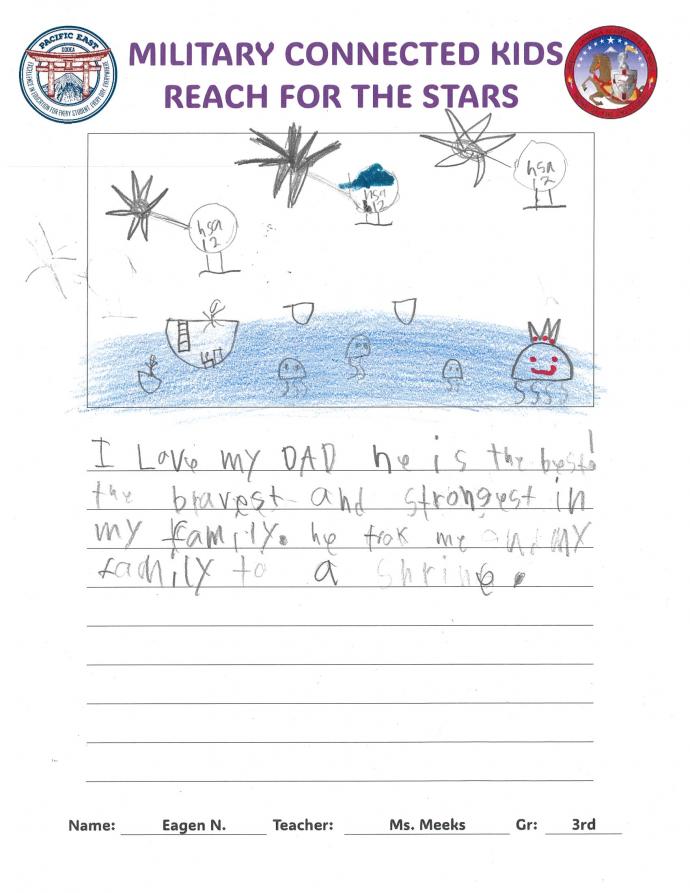 PACIFIC EAST
DODEA
EXCELLENCE IN EDUCATION FOR EVERY STUDENT, EVERY DAY, EVERYWHERE
MILITARY CONNECTED KIDS
REACH FOR THE STARS
hsa
12
hsa
12
hsa
12
I Love my DAD he is the best!
the bravest and strongest in
my family. he took me and my
family to a shrine.
Name: Eagen N. Teacher: Ms. Meeks Gr: 3rd